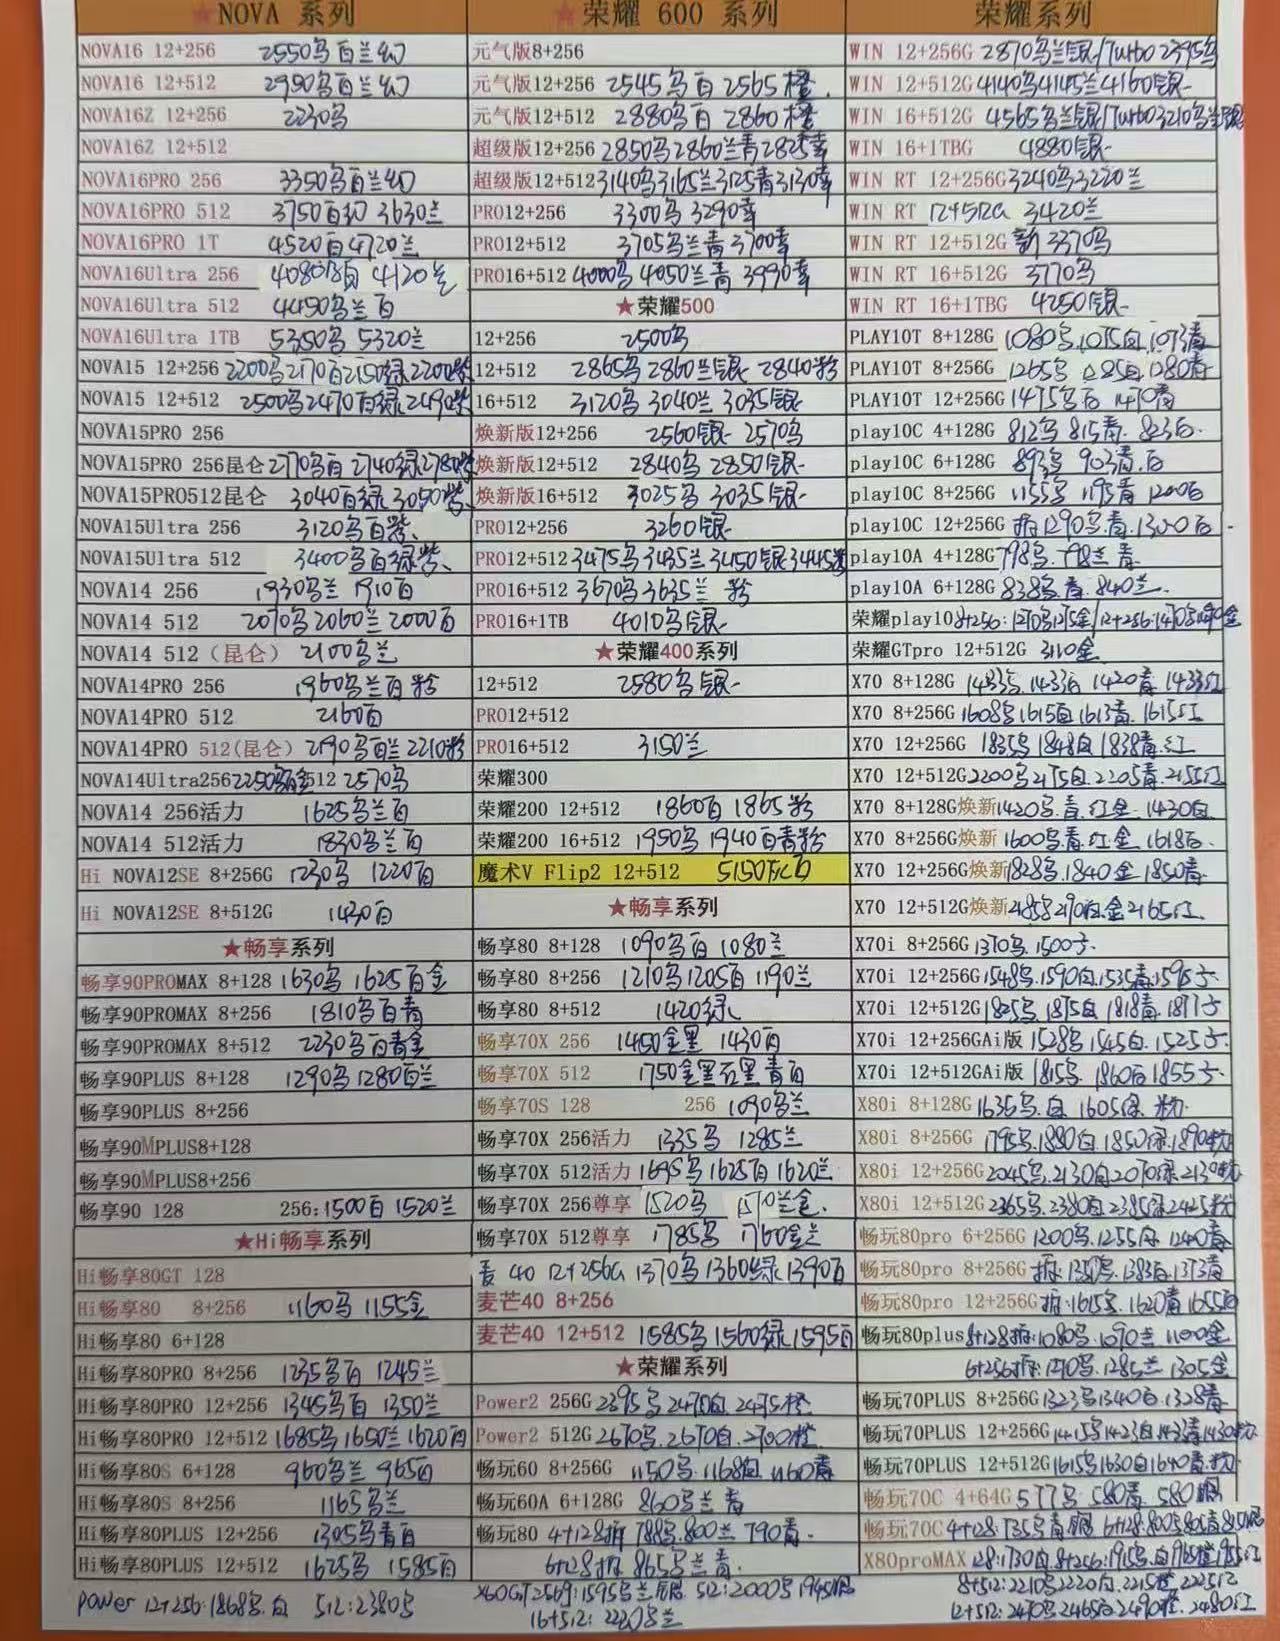 ★NOVA 系列
NOVA16 12+256 2550乌白兰幻
NOVA16 12+512 2990乌白兰幻
NOVA16Z 12+256 2230乌
NOVA16Z 12+512
NOVA16PRO 256 3350乌白兰幻
NOVA16PRO 512 3750百幻 3630兰
NOVA16PRO 1T 4520百4720兰
NOVA16Ultra 256 4120兰
NOVA16Ultra 512 4450乌兰百
NOVA16Ultra 1TB 5350乌 5320兰
NOVA15 12+256 2200乌2170百2150绿2200紫
NOVA15 12+512 2500乌2470百绿2490紫
NOVA15PRO 256
NOVA15PRO 256昆仑 2770乌百 2740绿2780紫
NOVA15PRO512昆仑 3040百绿 3050紫
NOVA15Ultra 256 3120乌百紫
NOVA15Ultra 512 3400乌百绿紫
NOVA14 256 1930乌兰 1910百
NOVA14 512 2070乌2060兰2000百
NOVA14 512（昆仑） 2100乌兰
NOVA14PRO 256 1960乌兰百粉
NOVA14PRO 512 2160百
NOVA14PRO 512(昆仑) 2190乌百兰2210粉
NOVA14Ultra256 512 2570乌
NOVA14 256活力 1625乌兰百
NOVA14 512活力 1830乌兰百
Hi NOVA12SE 8+256G 1230乌 1220百
Hi NOVA12SE 8+512G 1430百
★畅享系列
畅享90PROMAX 8+128 1630乌 1625百金
畅享90PROMAX 8+256 1810乌百青
畅享90PROMAX 8+512 2230乌百青金
畅享90PLUS 8+128 1290乌1280百兰
畅享90PLUS 8+256
畅享90MPLUS8+128
畅享90MPLUS8+256
畅享90 128 256:1500百 1520兰
★Hi畅享系列
Hi畅享80GT 128
Hi畅享80 8+256 1160乌 1155金
Hi畅享80 6+128
Hi畅享80PRO 8+256 1235乌百 1245兰
Hi畅享80PRO 12+256 1345乌百 1350兰
Hi畅享80PRO 12+512 1685乌1650兰1620百
Hi畅享80S 6+128 960乌兰 965百
Hi畅享80S 8+256 1165乌兰
Hi畅享80PLUS 12+256 1305乌青百
Hi畅享80PLUS 12+512 1625乌 1585百
power 12+256:1868乌.白 512:2380乌
★荣耀 600 系列
元气版8+256
元气版12+256 2545乌百 2565橙
元气版12+512 2880乌百 2860橙
超级版12+256 2850乌2860兰青2825幸
超级版12+512 3140乌3165兰3125青3130幸
PRO12+256 3300乌 3290幸
PRO12+512 3705乌兰青3700幸
PRO16+512 4000乌4050兰青3990幸
★荣耀500
12+256 2500乌
12+512 2865乌2860兰银 2840粉
16+512 3120乌 3040兰 3035银
焕新版12+256 2560银 2570乌
焕新版12+512 2840乌 2850银
焕新版16+512 3025乌 3035银
PRO12+256 3260银
PRO12+512 3475乌3435兰3450银3445粉
PRO16+512 3670乌3635兰 粉
PRO16+1TB 4010乌银
★荣耀400系列
12+512 2580乌银
PRO12+512
PRO16+512 3150兰
荣耀300
荣耀200 12+512 1860百 1865粉
荣耀200 16+512 1950乌 1940百青粉
魔术V Flip2 12+512 5150
★畅享系列
畅享80 8+128 1090乌百1080兰
畅享80 8+256 1210乌1205百1190兰
畅享80 8+512 1420绿
畅享70X 256 1450金黑 1430百
畅享70X 512 1750金黑 青百
畅享70S 128 256 1090乌兰
畅享70X 256活力 1335乌 1285兰
畅享70X 512活力 1695乌1625百1620兰
畅享70X 256尊享 1520乌 1510兰金.
畅享70X 512尊享 1785乌 1760金兰
麦 40 12+256G 1370乌1360绿1390百
麦芒40 8+256
麦芒40 12+512 1585乌1560绿1595百
★荣耀系列
Power2 256G 2395乌2470白.2475橙
Power2 512G 2670乌.2670白.2700橙
畅玩60 8+256G 1150乌.1168白.1160青
畅玩60A 6+128G 860乌兰青
畅玩80 4+128拆 788乌.800兰 790青.
6+128拆 865乌兰青.
X60GT256g:1595乌兰银. 512:2000乌1945银
16+512: 2220乌兰
荣耀系列
WIN 12+256G 2870乌兰银/Turbo2395乌
WIN 12+512G 4140乌4145兰4160银
WIN 16+512G 4565乌兰银/Turbo3210乌兰银
WIN 16+1TBG 4880银
WIN RT 12+256G 3240乌3220兰
WIN RT 12+512G 3420兰
WIN RT 12+512G 新3370乌
WIN RT 16+512G 3770乌
WIN RT 16+1TBG 4250银
PLAY10T 8+128G 1080乌.1075白.1073青
PLAY10T 8+256G 1265乌 1285白1280青
PLAY10T 12+256G 1475乌白 1470青
play10C 4+128G 812乌 815青. 823白.
play10C 6+128G 893乌 903青.白
play10C 8+256G 1155乌 1195青 1200白
play10C 12+256G 拆1290乌.青.1300白
play10A 4+128G 798乌.798兰青
play10A 6+128G 838乌.青.840兰.
荣耀play10 8+256:1270乌1275金/12+256:1470乌 金
荣耀GTpro 12+512G 3110金
X70 8+128G 1433乌.1433白 1420青.1433红
X70 8+256G 1608乌1615白1613青.1615红
X70 12+256G 1835乌1848白1838青.红
X70 12+512G 2200乌2175白.2205青.2155红
X70 8+128G焕新 1420乌.青.红金.1430白
X70 8+256G焕新 1600乌青.红金 1618白.
X70 12+256G焕新 1828乌.1840金 1850青
X70 12+512G焕新 2190白.金2165红
X70i 8+256G 1370乌.1500
X70i 12+256G 1548乌.1590白.1535青.1595
X70i 12+512G 1825乌.1875白 1818青.1877
X70i 12+256GAi版 1528乌.1545白.1525
X70i 12+512GAi版 1815乌.1860白1855
X80i 8+128G 1635乌.白 1605绿.粉.
X80i 8+256G 1795乌.1880白.1850绿.1890粉
X80i 12+256G 2045乌.2130白2070绿2130粉
X80i 12+512G 2365乌.2380白2385绿2425粉
畅玩80pro 6+256G 1200乌.1255白.1240青
畅玩80pro 8+256G 拆:1351乌.1383白.1373青
畅玩80pro 12+256G 拆:1615乌.1620青1655白
畅玩80plus 8+128拆:1080乌.1090兰 1100金
6+256拆:1270乌.1285兰 1305金
畅玩70PLUS 8+256G 1323乌1340白.1328青
畅玩70PLUS 12+256G 1415乌1423白1433青1430粉
畅玩70PLUS 12+512G 1615乌1630白1640青.粉
畅玩70C 4+64G 577乌 580青.580银
畅玩70C 4+128:735乌青.银 6+128:800乌805青815银
X80proMAX 128:1730白.8+256:1915乌.白1965橙1955红
8+512:2210乌2220白.2215橙2225红
12+512:2470乌2465白2490橙.2480红